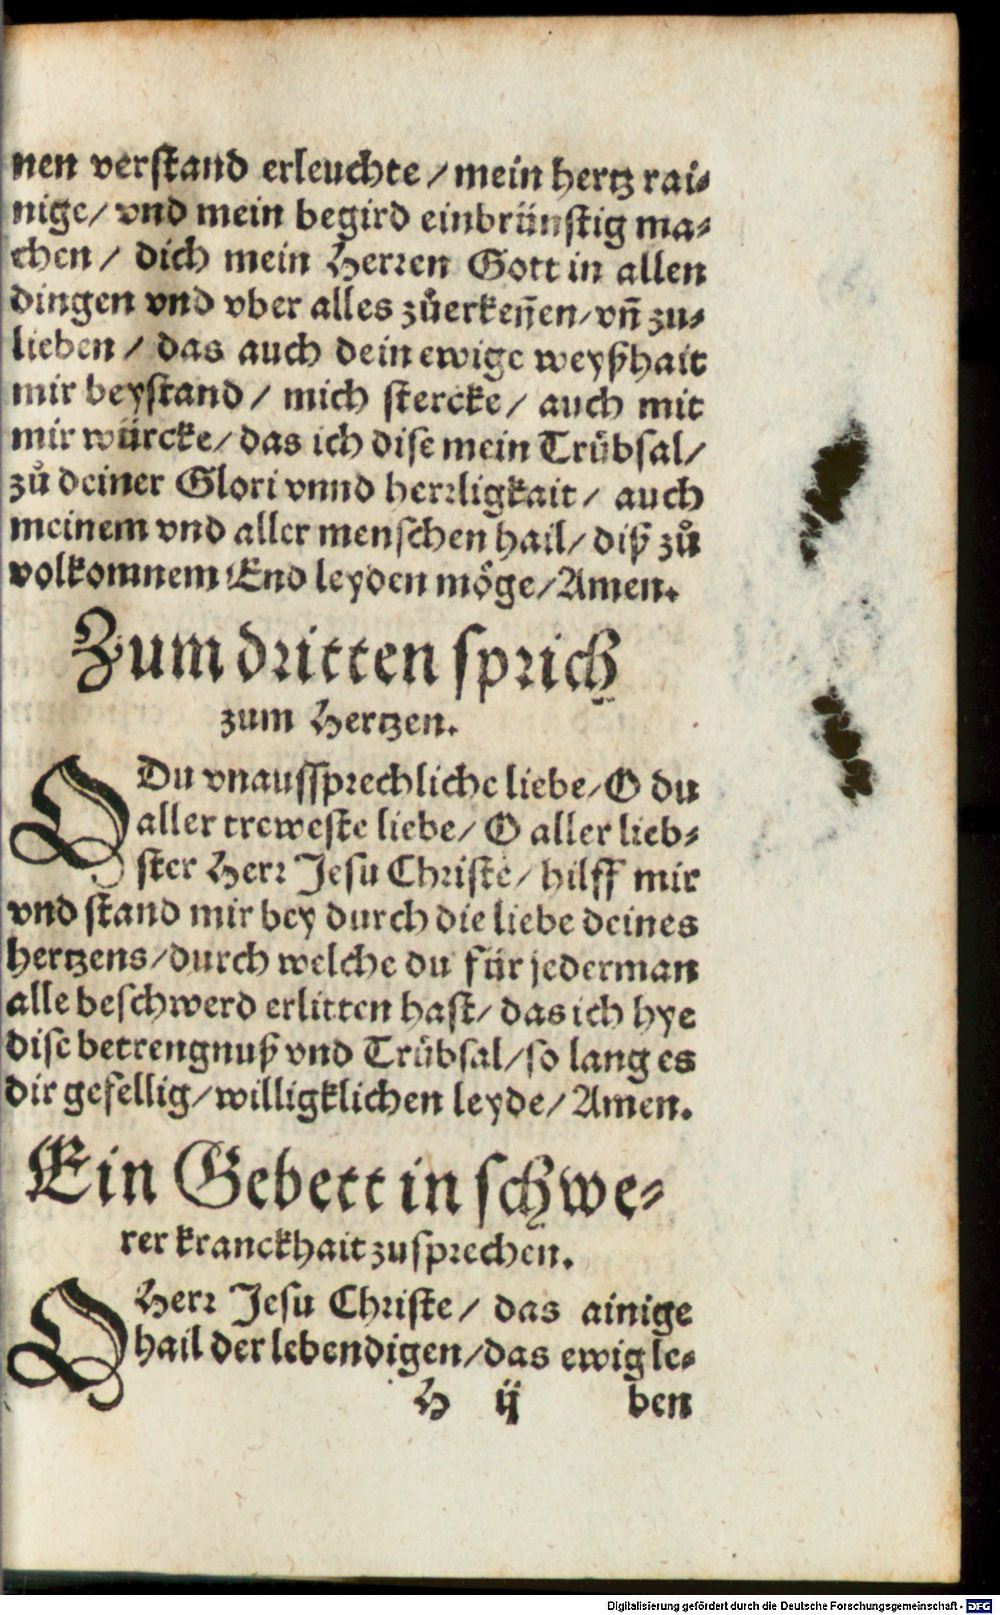 nen verſtand erleuchte / mein hertz rai⸗
nige / vnd mein begird einbrünſtig ma⸗
chen / dich mein Herꝛen Gott in allen
dingen vnd vber alles zůerkeñen / vñ zu⸗
lieben / das auch dein ewige weyßhait
mir beyſtand / mich ſtercke / auch mit
mir würcke / das ich diſe mein Trübſal /
zů deiner Glori vnnd herꝛligkait / auch
meinem vnd aller menſchen hail / diß zů
volkomnem End leyden möge / Amen.
Zum dꝛitten ſpꝛich
zum Hertzen.
O Du vnauſſſpꝛechliche liebe / O du
aller treweſte liebe / O aller lieb⸗
ſter Herꝛ Jeſu Chꝛiſte / hilff mir
vnd ſtand mir bey durch die liebe deines
hertzens / durch welche du für jederman
alle beſchwerd erlitten haſt / das ich hye
diſe betrengnuß vnd Trübſal / ſo lang es
dir gefellig / willigklichen leyde / Amen.
Ein Gebett in ſchwe⸗
rer kranckhait zuſpꝛechen.
O Herꝛ Jeſu Chꝛiſte / das ainige
hail der lebendigen / das ewig le⸗
H ij ben
Digitalisierung gefördert durch die Deutsche Forschungsgemeinschaft - DFG